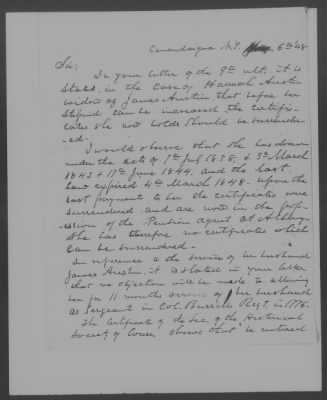 Canandaigua N.Y. 6th '48
Sir;
In your letter of the 9th ult. it is
stated, in the case of Hannah Austin
widow of James Austin that before her
stipend can be increased, the certifi-
cates she now holds should be surrende-
-ed.
I would observe that she has drawn
under the acts of 7th July 1838, & 3rd March
1843 & 17th June 1844, and the last
law expired 4th March 1848. Upon the
last payment to her the certificates were
surrendered and are now in the poss-
-ession of the Pension Agent at Albany.
She has therefore no certificates which
can be surrendered.-
In reference to the service of her husband
James Austin, it is stated in your letter
that no objection will be made to allowing
her for 11 months service of her husband
as Sergeant in Col. Regt. in 1776.
The Certificate of the Sec of the Historical
Society of Conn shows that he entered